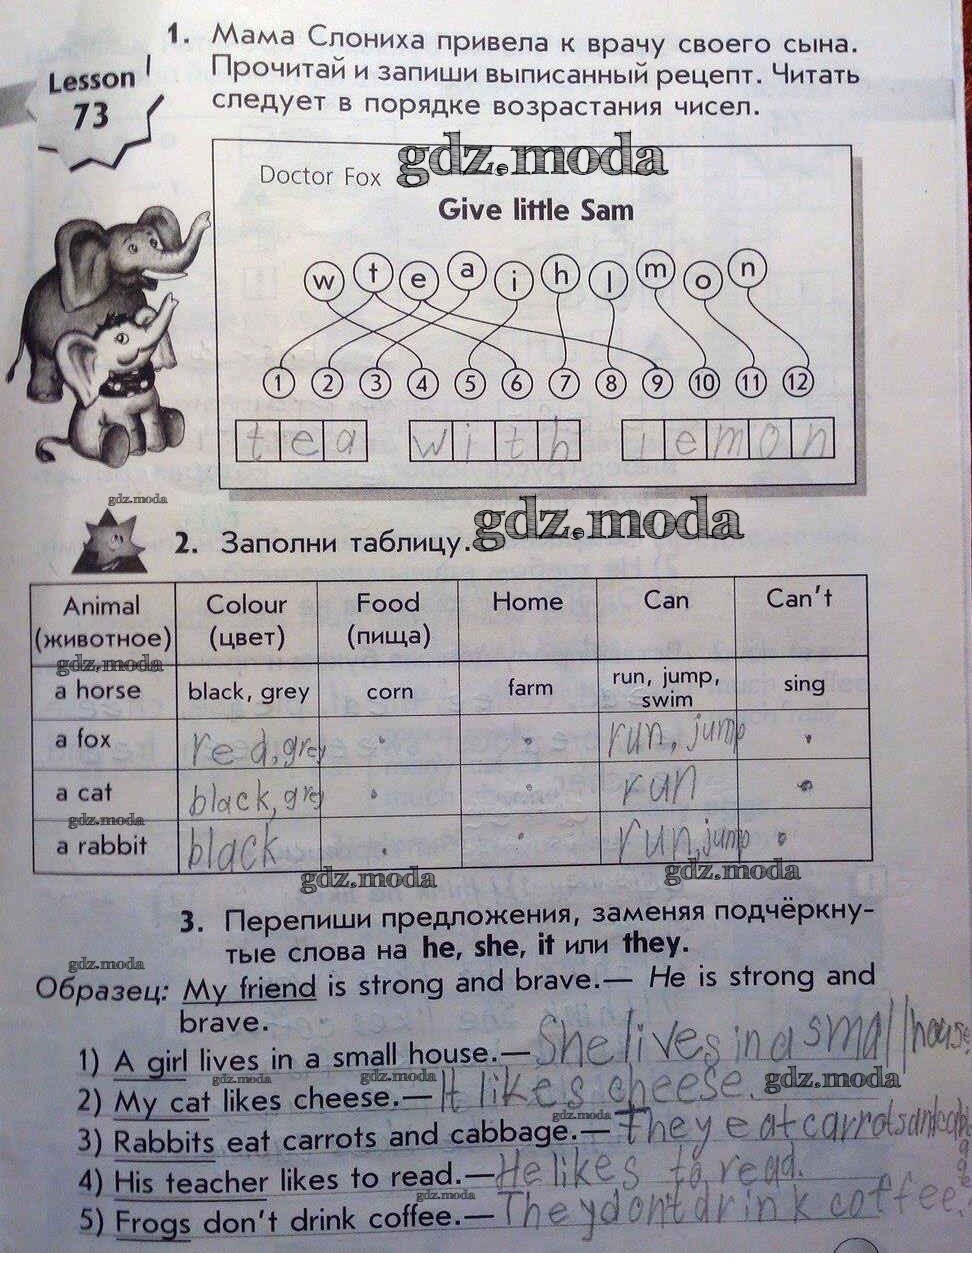 Lesson
73
1. Мама Слониха привела к врачу своего сына.
Прочитай и запиши выписанный рецепт. Читать
следует в порядке возрастания чисел.
gdz.moda
Doctor Fox
Give little Sam
w t e a i h l m o n
1 2 3 4 5 6 7 8 9 10 11 12
tea with lemon
gdz.moda
gdz.moda
2. Заполни таблицу.
Animal (животное) Colour (цвет) Food (пища) Home Can Can't
gdz.moda
a horse black, grey corn farm run, jump, swim sing
a fox red, grey run, jump
a cat black, grey run
gdz.moda
a rabbit black run, jump
gdz.moda gdz.moda
3. Перепиши предложения, заменяя подчёркну-
тые слова на he, she, it или they.
gdz.moda
Образец: My friend is strong and brave.— He is strong and
brave.
1) A girl lives in a small house.— She lives in a small house
gdz.moda gdz.moda gdz.moda
2) My cat likes cheese.— It likes cheese.
gdz.moda
3) Rabbits eat carrots and cabbage.— They eat carrots and
4) His teacher likes to read.— He likes to read.
gdz.moda
5) Frogs don't drink coffee.— They don't drink coffee.